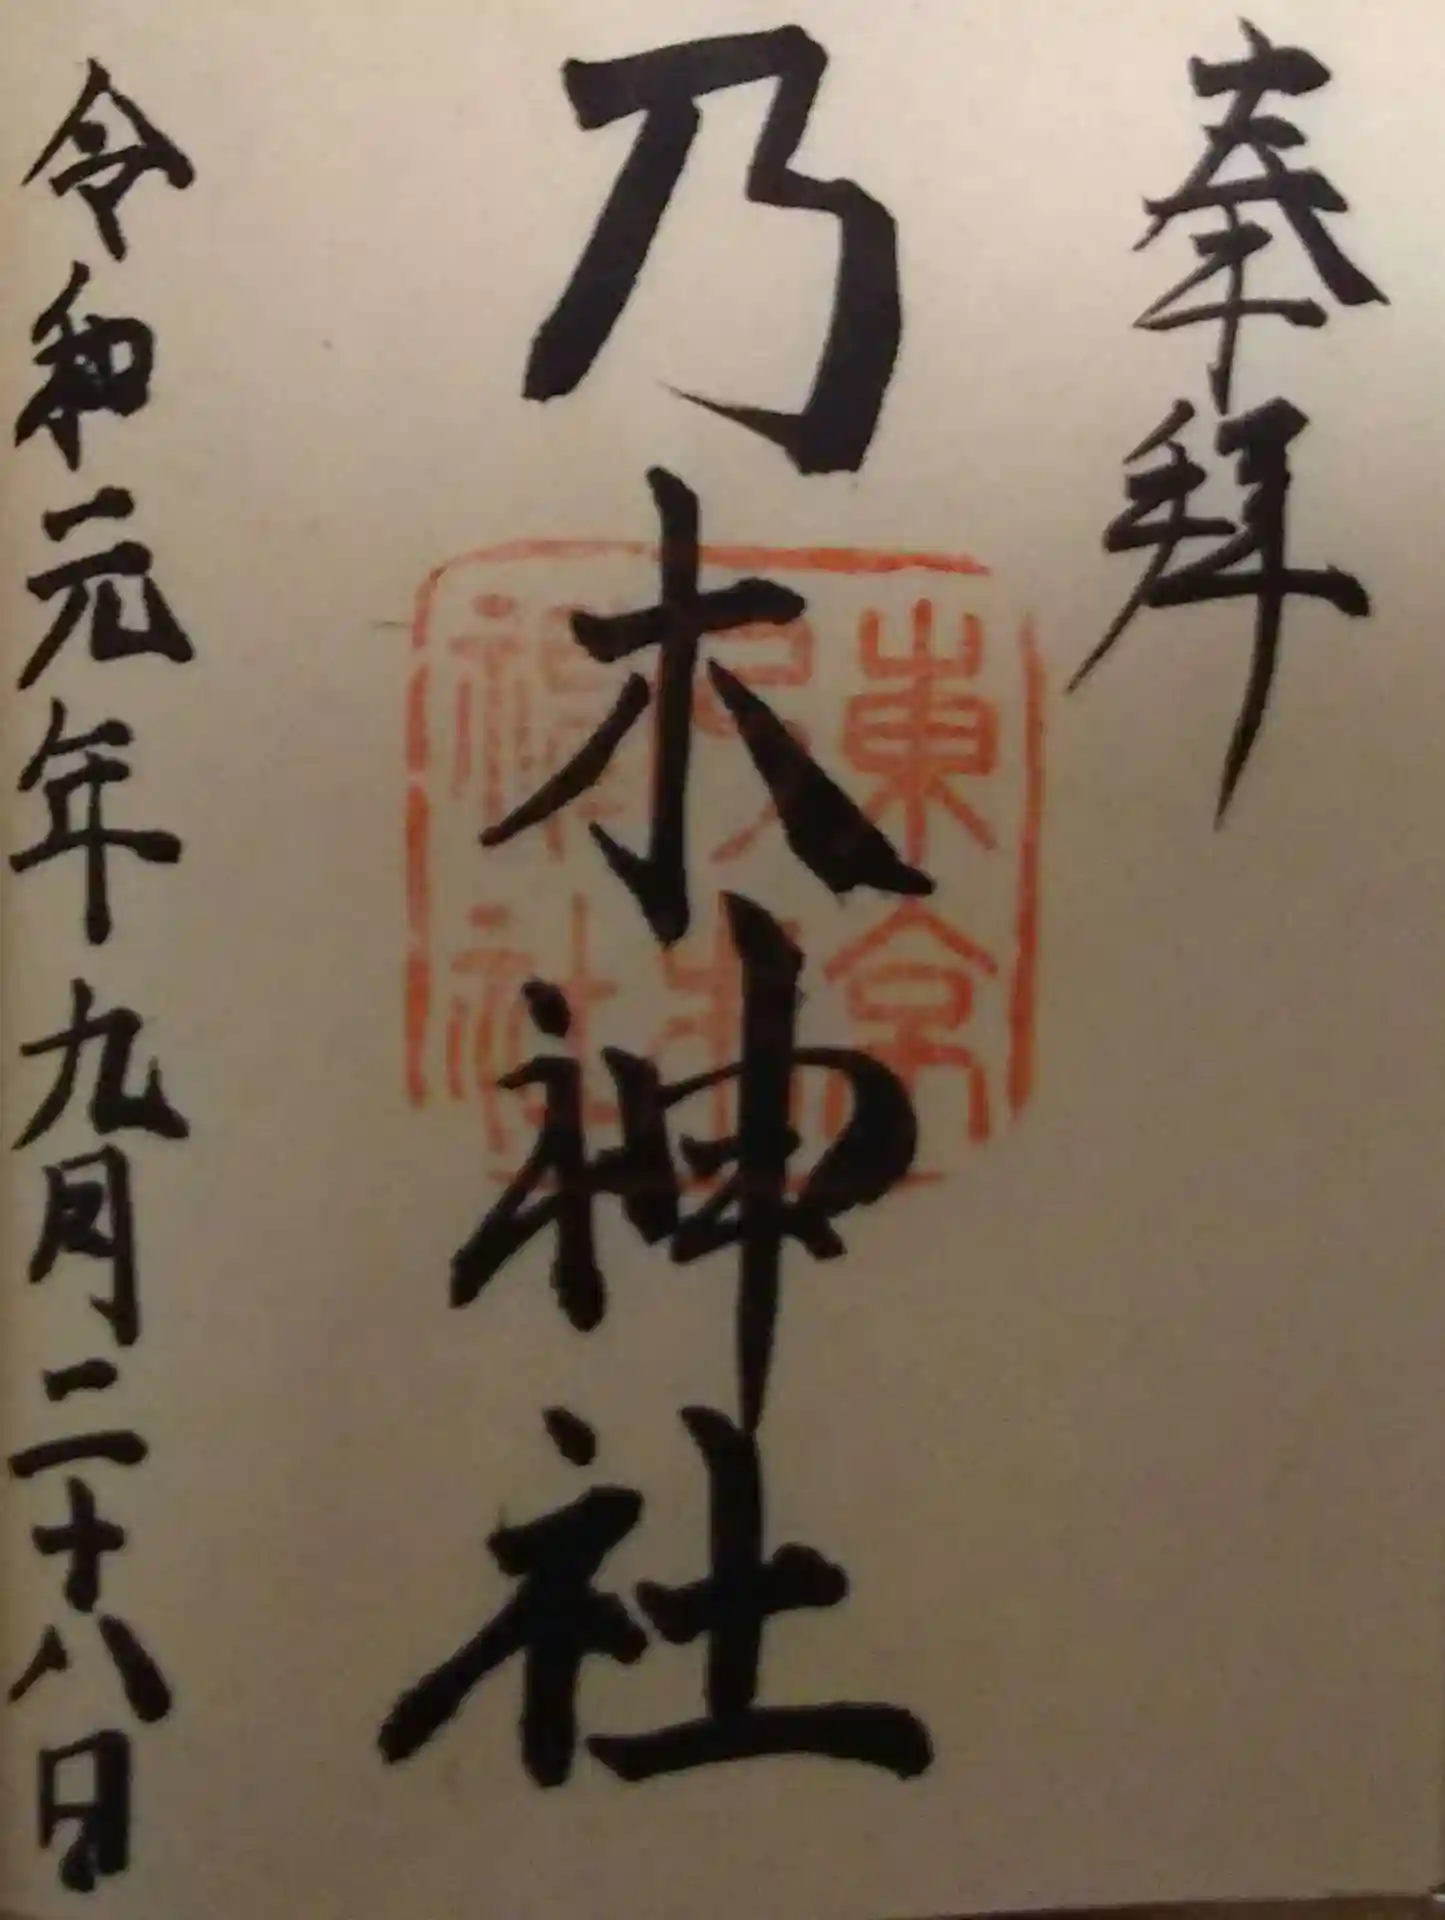 奉拝
乃木神社
東京
乃木
神社
令和元年九月二十八日